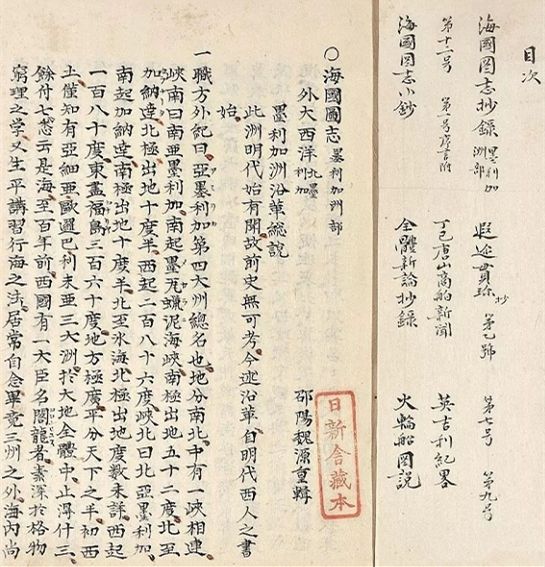 目次
海國圖志抄錄 墨利加洲部
遐迩貫珍抄 第乙號 第七号 第九号
第十二号 第一号
丁巳唐山商舶新聞
英吉利紀畧
海國圖志小鈔
全體新論抄錄
火輪船図説
〇海國圖志 墨利加洲部
外大西洋 北墨利加
墨利加洲沿革總說
邵陽魏源重輯
此洲明代始有開故前史無可考今述沿革自明代西人之書
始
一職方外紀曰亞墨利加第四大洲總名也地分南北中有一峽相連
峽南曰南亞墨利加南起墨瓦蠟泥海峽南極出地五十二度北至
加納達北極出地十度半西起二百八十六度峽北曰北亞墨利加
南起加納達南極出地十度半北至氷海北極出地度數未詳西起
一百八十度東盡福島三百六十度地方極廣平分天下之半初西
土僅知有亞細亞歐邏巴利未亞三大洲於大地全體中止得什三
餘什七悉云是海至百年前西國有一大臣名閣龍者素深於格物
窮理之学又生平講習行海之法居常自念畢竟三州之外海内尚
日新舍藏本